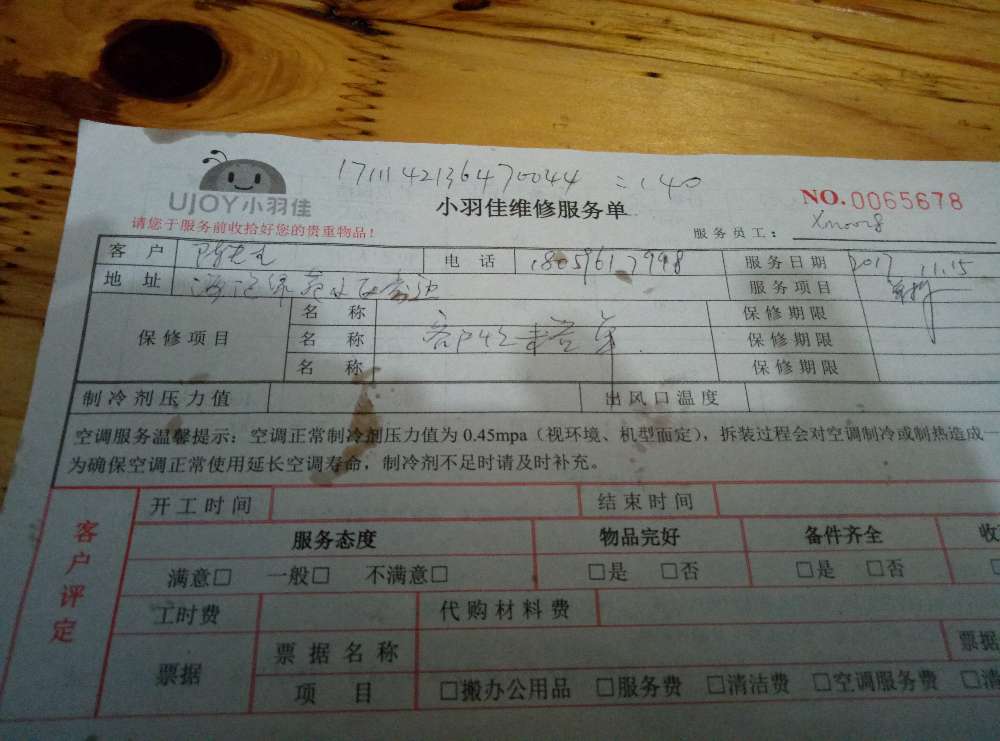 1711142136470044 = 140
UJOY小羽佳
小羽佳维修服务单
NO.0065678
请您于服务前收拾好您的贵重物品！
服务员工： Xm0028
客户 电话 服务日期 2017 11.15
地址 服务项目
保修项目 名称 保修期限
名称 保修期限
名称 保修期限
制冷剂压力值 出风口温度
空调服务温馨提示：空调正常制冷剂压力值为 0.45mpa（视环境、机型而定），拆装过程会对空调制冷或制热造成一
为确保空调正常使用延长空调寿命，制冷剂不足时请及时补充。
客户评定
开工时间 结束时间
服务态度 物品完好 备件齐全 收
满意□ 一般□ 不满意□ □是 □否 □是 □否
工时费 代购材料费
票据 票据名称 票据
项目 □搬办公用品 □服务费 □清洁费 □空调服务费